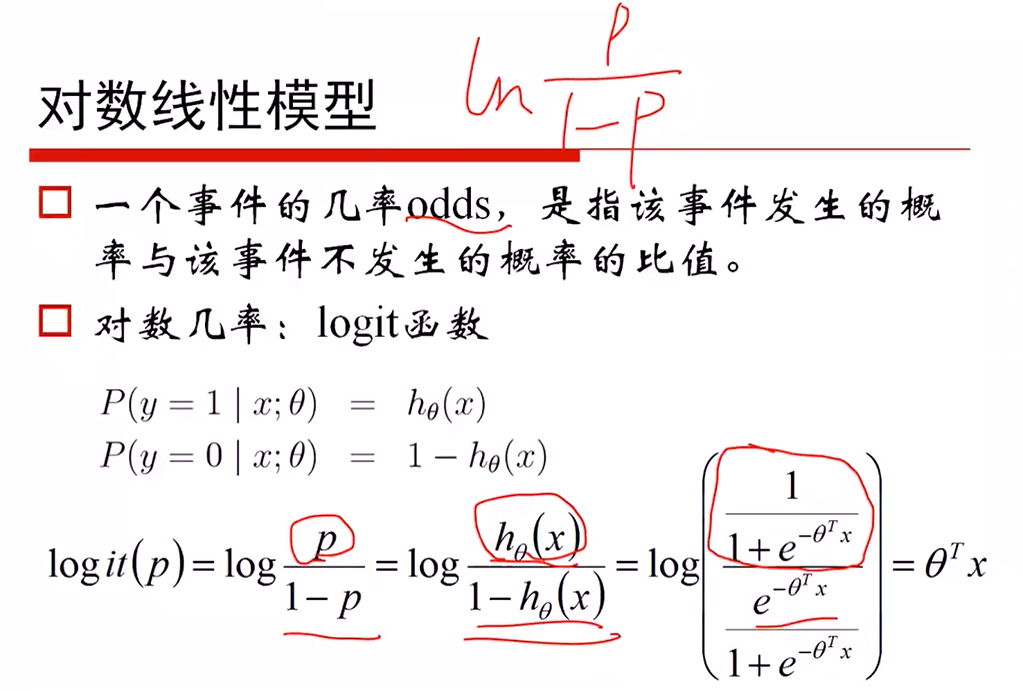 ln p/(1-p)
对数线性模型
一个事件的几率odds，是指该事件发生的概
率与该事件不发生的概率的比值。
对数几率：logit函数
P(y = 1 | x; θ) = h_θ(x)
P(y = 0 | x; θ) = 1 − h_θ(x)
logit(p) = log p/(1−p) = log h_θ(x)/(1−h_θ(x)) = log( (1/(1+e^{−θ^T x})) / (e^{−θ^T x}/(1+e^{−θ^T x})) ) = θ^T x